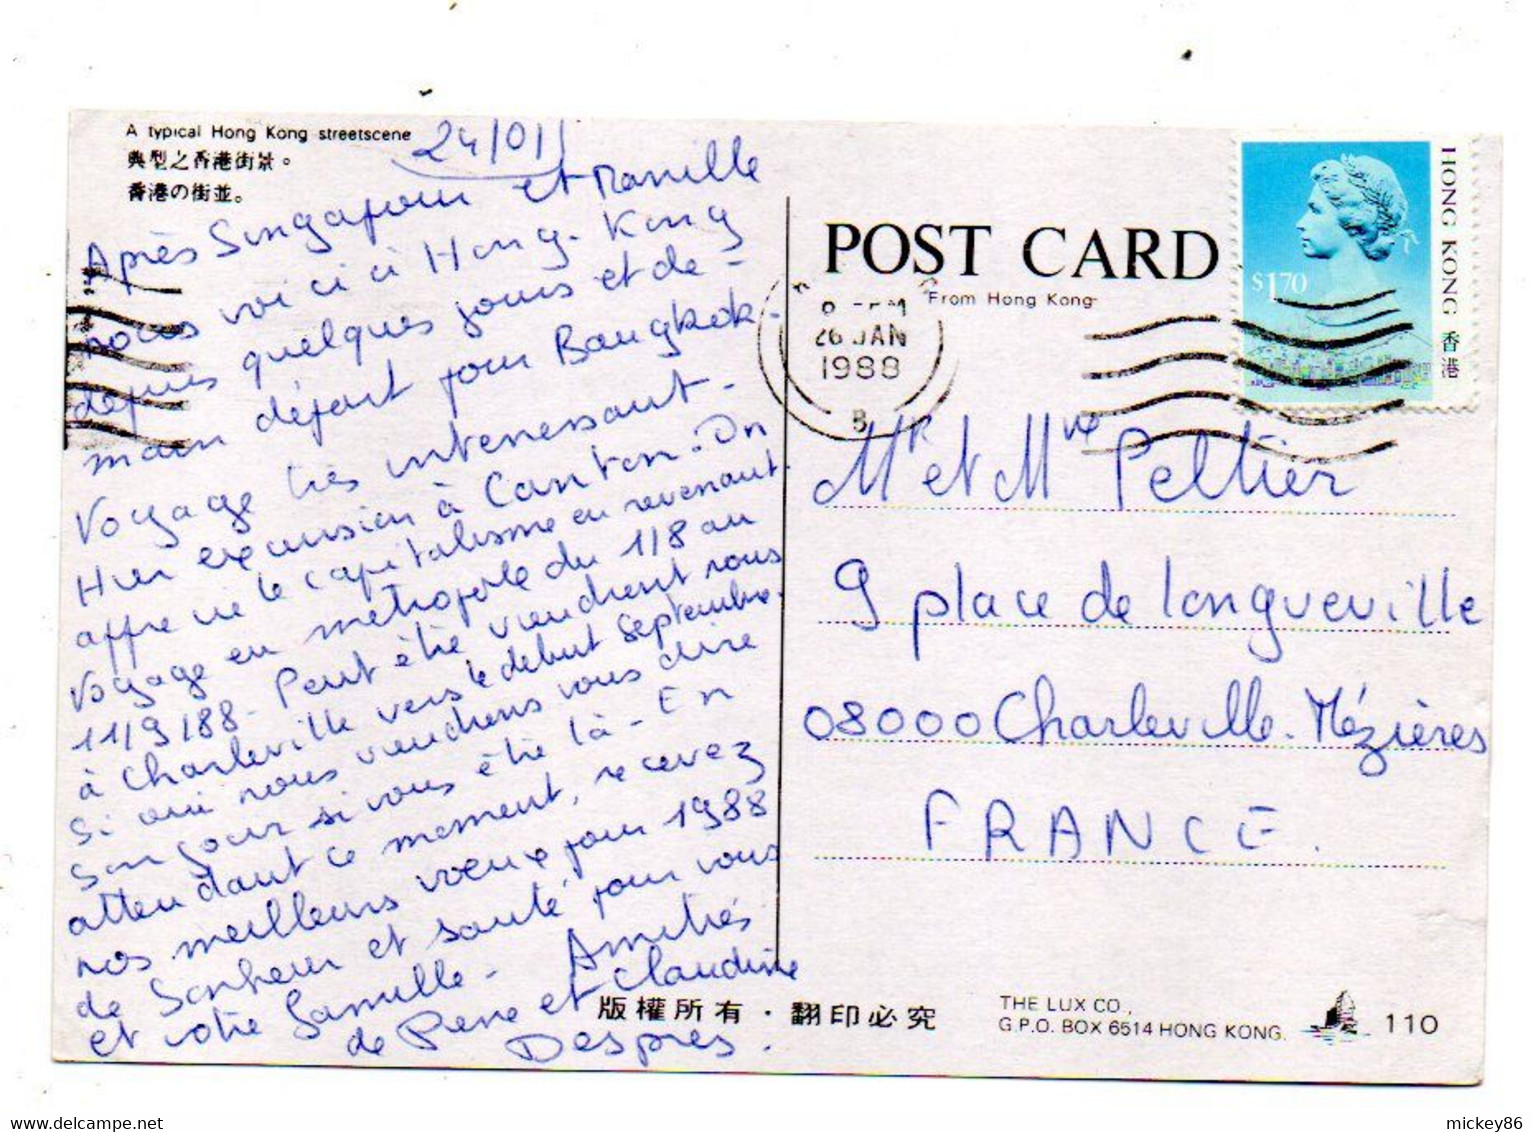 A typical Hong Kong streetscene
典型之香港街景。
香港の街並。
24/01
Après Singapour et Manille
nous voici à Hong-Kong
depuis quelques jours et de-
main départ pour Bangkok.
Voyage très interessant-
Hier excursion à Canton. On
apprécie le capitalisme en revenant.
Voyage en métropole du 1/8 au
11/9/88- Peut être viendront nous
à Charleville vers le debut septembre.
Si oui nous viendrons vous dire
bonjour si vous ête là- En
attendant ce moment, recevez
nos meilleurs voeux pour 1988
de bonheur et santé pour vous
et votre famille- Amitiés
de Pierre et Claudine
Després.
POST CARD
From Hong Kong
HONG KONG 香港
$1.70
26 JAN
1988
B
Mr et Mme Peltier
9 place de longueville
08000 Charleville-Mézières
FRANCE.
版權所有·翻印必究
THE LUX CO.,
G.P.O. BOX 6514 HONG KONG.
110
mickey86